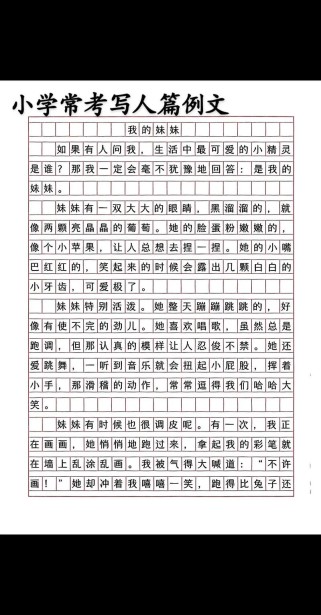 小学常考写人篇例文
我的妹妹
如果有人问我，生活中最可爱的小精灵
是谁？那我一定会毫不犹豫地回答：是我的
妹妹。
妹妹有一双大大的眼睛，黑溜溜的，就
像两颗亮晶晶的葡萄。她的脸蛋粉嫩嫩的，
像个小苹果，让人总想去捏一捏。她的小嘴
巴红红的，笑起来的时候会露出几颗白白的
小牙齿，可爱极了。
妹妹特别活泼。她整天蹦蹦跳跳的，好
像有使不完的劲儿。她喜欢唱歌，虽然总是
跑调，但那认真的模样让人忍俊不禁。她还
爱跳舞，一听到音乐就会扭起小屁股，挥着
小手，那滑稽的动作，常常逗得我们哈哈大
笑。
妹妹有时候也很调皮呢。有一次，我正
在画画，她悄悄地跑过来，拿起我的彩笔就
在墙上乱涂乱画。我被气得大喊道：“不许
画！”她却冲着我嘻嘻一笑，跑得比兔子还